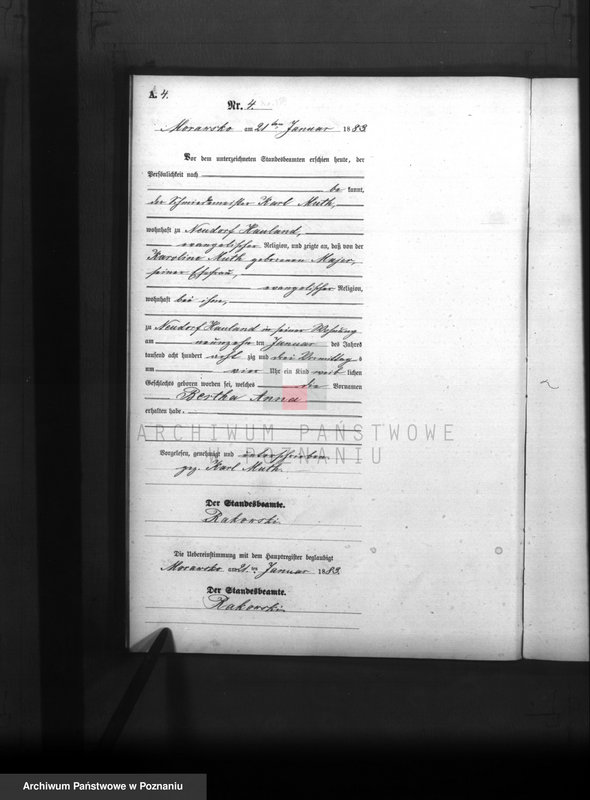 A. 4.
Nr. 4.
Morasko am 21ten Januar 1883.
Vor dem unterzeichneten Standesbeamten erschien heute, der
Persönlichkeit nach
be kannt,
der Schmiedemeister Karl Muth,
wohnhaft zu Neudorf Hauland,
evangelischer Religion, und zeigte an, daß von der
Karoline Muth geborenen Majer,
seiner Ehefrau,
evangelischer Religion,
wohnhaft bei ihm,
zu Neudorf Hauland in seiner Wohnung
am neunzehn ten Januar des Jahres
tausend acht hundert acht zig und drei Vormittag s
um vier Uhr ein Kind weib lichen
Geschlechts geboren worden sei, welches die Vornamen
Bertha Anna
erhalten habe.
ARCHIWUM PAŃSTWOWE
W POZNANIU
Vorgelesen, genehmigt und unterschrieben
gez. Karl Muth.
Der Standesbeamte.
Rakowski.
Die Uebereinstimmung mit dem Hauptregister beglaubigt
Morasko am 21ten Januar 1883.
Der Standesbeamte.
Rakowski.
Archiwum Państwowe w Poznaniu